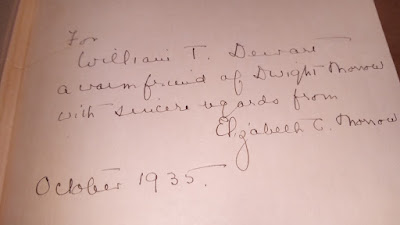 For
William T. Dewart
a warm friend of Dwight Morrow
with sincere regards from
Elizabeth C. Morrow
October 1935.